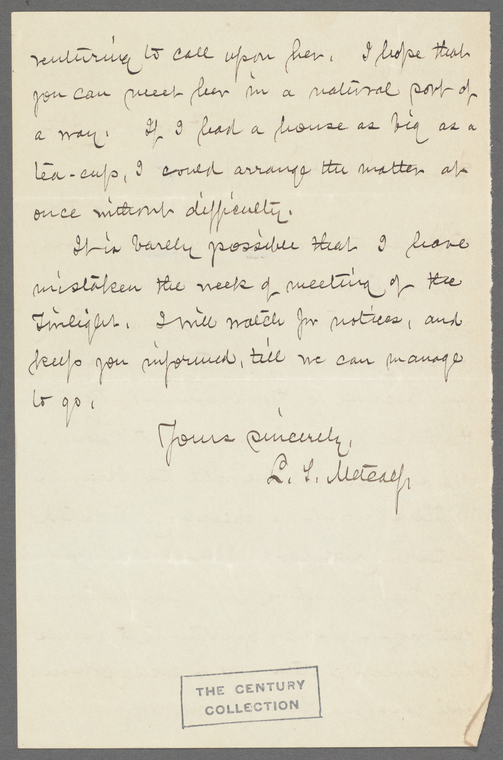 venturing to call upon her. I hope that
you can meet her in a natural sort of
a way. If I had a house as big as a
tea-cup, I could arrange the matter at
once without difficulty.
It is barely possible that I have
mistaken the week of meeting of the
Twilight. I will watch for notices, and
keep you informed, till we can manage
to go.
Yours sincerely,
L. S. Metcalf
THE CENTURY
COLLECTION